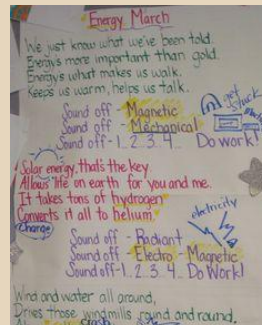 Energy March
We just know what we've been told.
Energy's more important than gold.
Energy's what makes us walk.
Keeps us warm, helps us talk.
get
stuck
Sound off - Magnetic
Sound off - Mechanical
Sound off - 1. 2. 3. 4. Do work!
Solar energy, that's the key
Allows life on earth for you and me.
It takes tons of hydrogen
Converts it all to helium.
Change
electricity
Sound off - Radiant
Sound off - Electro - Magnetic
Sound off - 1. 2. 3. 4. Do Work!
Wind and water all around,
Drives those windmills round and round.